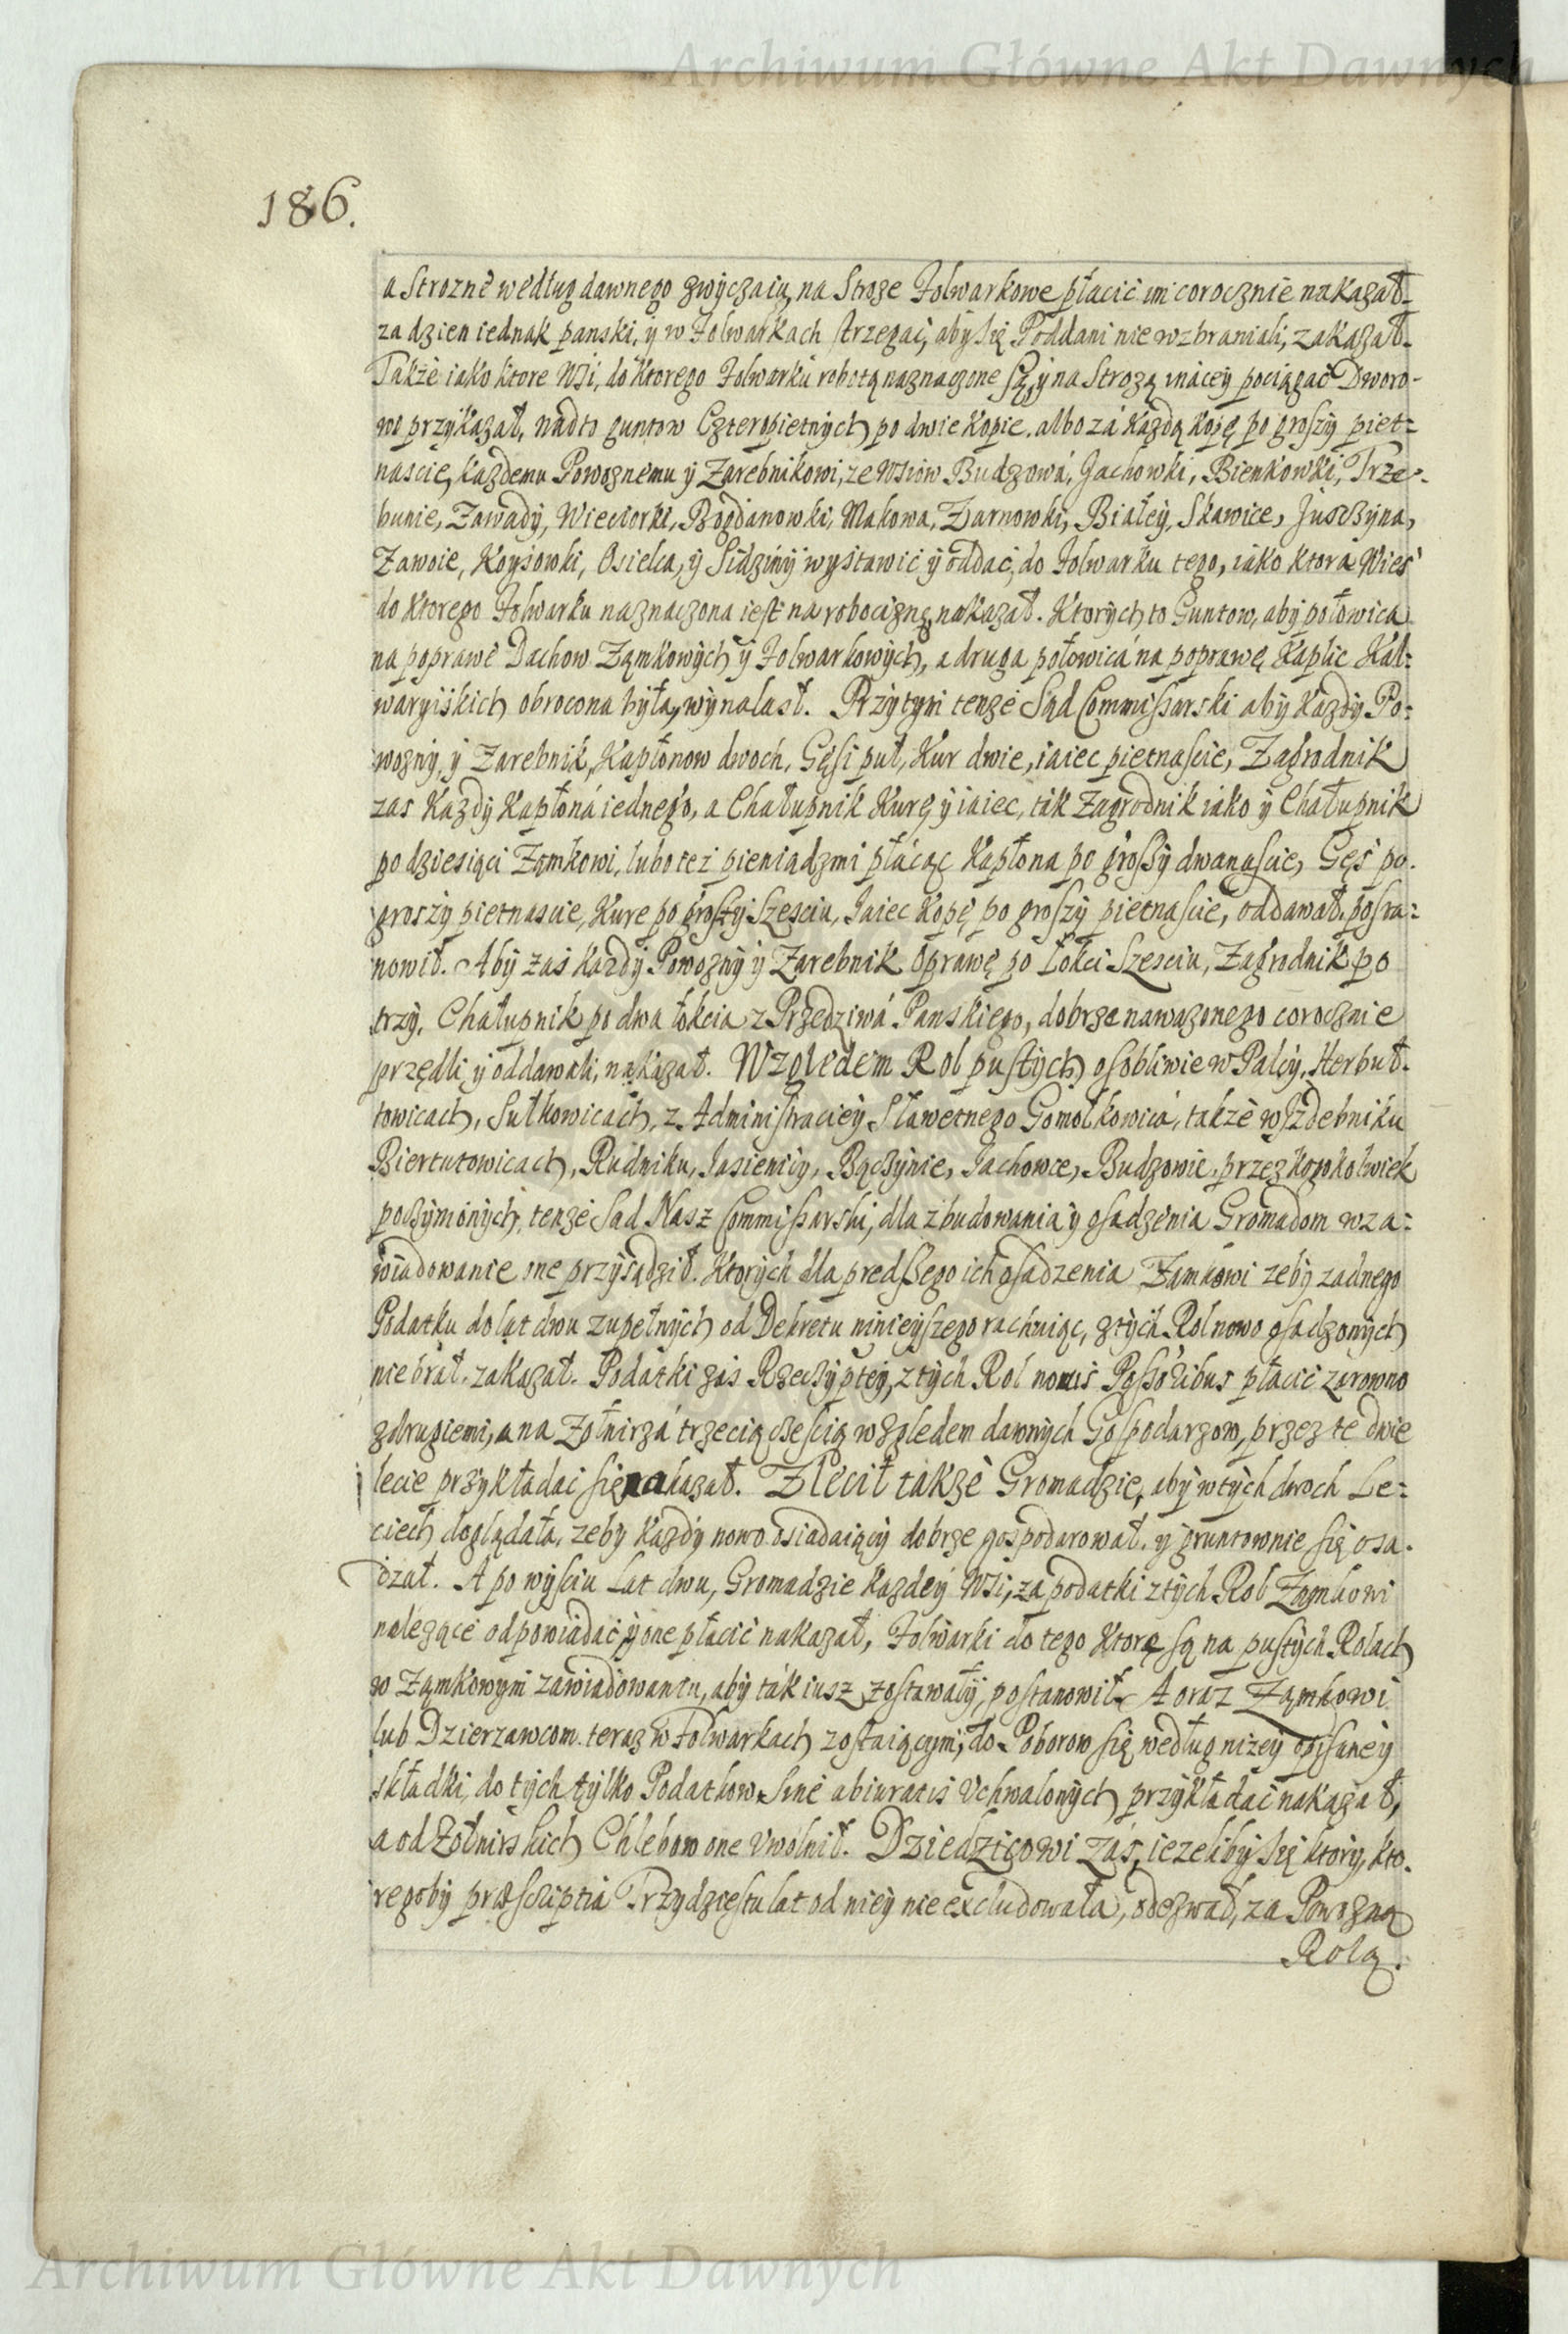 Archiwum Główne Akt Dawnych
186.
a Strozne według dawnego zwyczaiu, na Stroze Folwarkowe płacić im corocznie nakazał.
za dzien iednak panski, y w Folwarkach strzegać, aby się Poddani nie wzbraniali, zakazał.
Także iako ktore Wsi, do ktorego Folwarku robotą naznaczone są, y na Strozą inácey pociągać Dworo-
wi przykazał, nadto guntow Czteropietnych po dwie Kopie. albo zá każdą kopę po groszy piet=
nascie, każdemu Powoznemu y Zarebnikowi, ze Wsiow Budzowá, Jachowki, Bienkowki, Trze-
bunie, Zawady, Wieciorki, Bogdanowki, Makowa, Zarnowki, Białey, Skawice, Juszczyna,
Zawoie, Koysowki, Osielca, y Sidziny wystawić y oddać, do Folwarku tego, iako ktora Wieś
do ktorego Folwarku naznaczona iest na robociznę, nakazał. Ktorych to Guntow, aby połowica
na poprawe Dachow Zamkowych y Folwarkowych, a druga połowicá na poprawę Kaplic Kal=
waryiskich obrocona była, wynalasł. Przytym tenże Sąd Commissarski aby każdy Po=
wozny, y Zarebnik, Kapłonow dwoch, Gęsi puł, Kur dwie, iaiec pietnascie, Zagrodnik
zas każdy Kapłoná iednego, a Chałupnik Kurę y iaiec, ták Zagrodnik iáko y Chałupnik
po dziesiąci Zamkowi, lubo też pieniądzmi płácąc Kapłona po groszy dwanascie, Gęś po.
groszy pietnascie, Kure po groszy Szesciu, Jaiec Kopę po groszy pietnascie, oddawał, posta=
nowił. Aby zaś każdy Powozny y Zarebnik Oprawę po Łokci Szesciu, Zagrodnik po
trzy, Chałupnik po dwa łokcia z Przędziwá Panskiego, dobrze nawazonego corocznie
przędli y oddawali, nakazał. Względem Rol pustych osobliwie w Palcy, Herbuł-
towicach, Sułkowicach, z Administraciey Sławetnego Gomołkowicá, także w Izdebniku
Biertutowicach, Rudniku, Jasienicy, Bączynie, Jachowce, Budzowie, przez kogokolwiek
poczynionych, tenże Sad Nasz Commissarski, dla zbudowania y osadzenia Gromadom w za=
wiadowanie one przysądził. Ktorych dla predszego ich osadzenia Zamkowi zeby zadnego
Podatku do lat dwu zupełnych od Dekretu ninieyszego rachuiąc, z tych Rol nowo osadzonych
nie brał, zakazał. Podatki zás Rzeczyptey, z tych Rol nowis Possoribus płacić zarowno
z drugiemi, a na Zołnirzá trzecią częscią względem dawnych Gospodarzow, przez te dwie
lecie przykładać się nakazał. Zlecił także Gromadzie, aby w tych dwoch Le=
ciech doglądała, zeby każdy nowo osiadaiący dobrze gospodarował, y gruntownie się osa-
dzał. A po wyściu Lat dwu, Gromadzie każdey Wsi, za podatki z tych Rol Zamkowi
nalezące odpowiadać y one płacić nakazał, Folwarki do tego ktore są na pustych Rolach
w Zamkowym zawiadowaniu, aby ták iusz zostawały, postanowił. A oraz Zamkowi
lub Dzierzawcom teraz w Folwarkach zostaiącym, do Poborow się według niżey opisaney
składki, do tych tylko Podatkow sine abiuratis Uchwalonych przykładać nakazał,
a od Zołnirskich Chlebow one Uwolnił. Dziedzicowi zás, iezeliby się ktory, kto-
regoby præscriptia Trzydziestu lat od niey nie excludowała, odezwał, za Powozną
Rolą.
Archiwum Główne Akt Dawnych